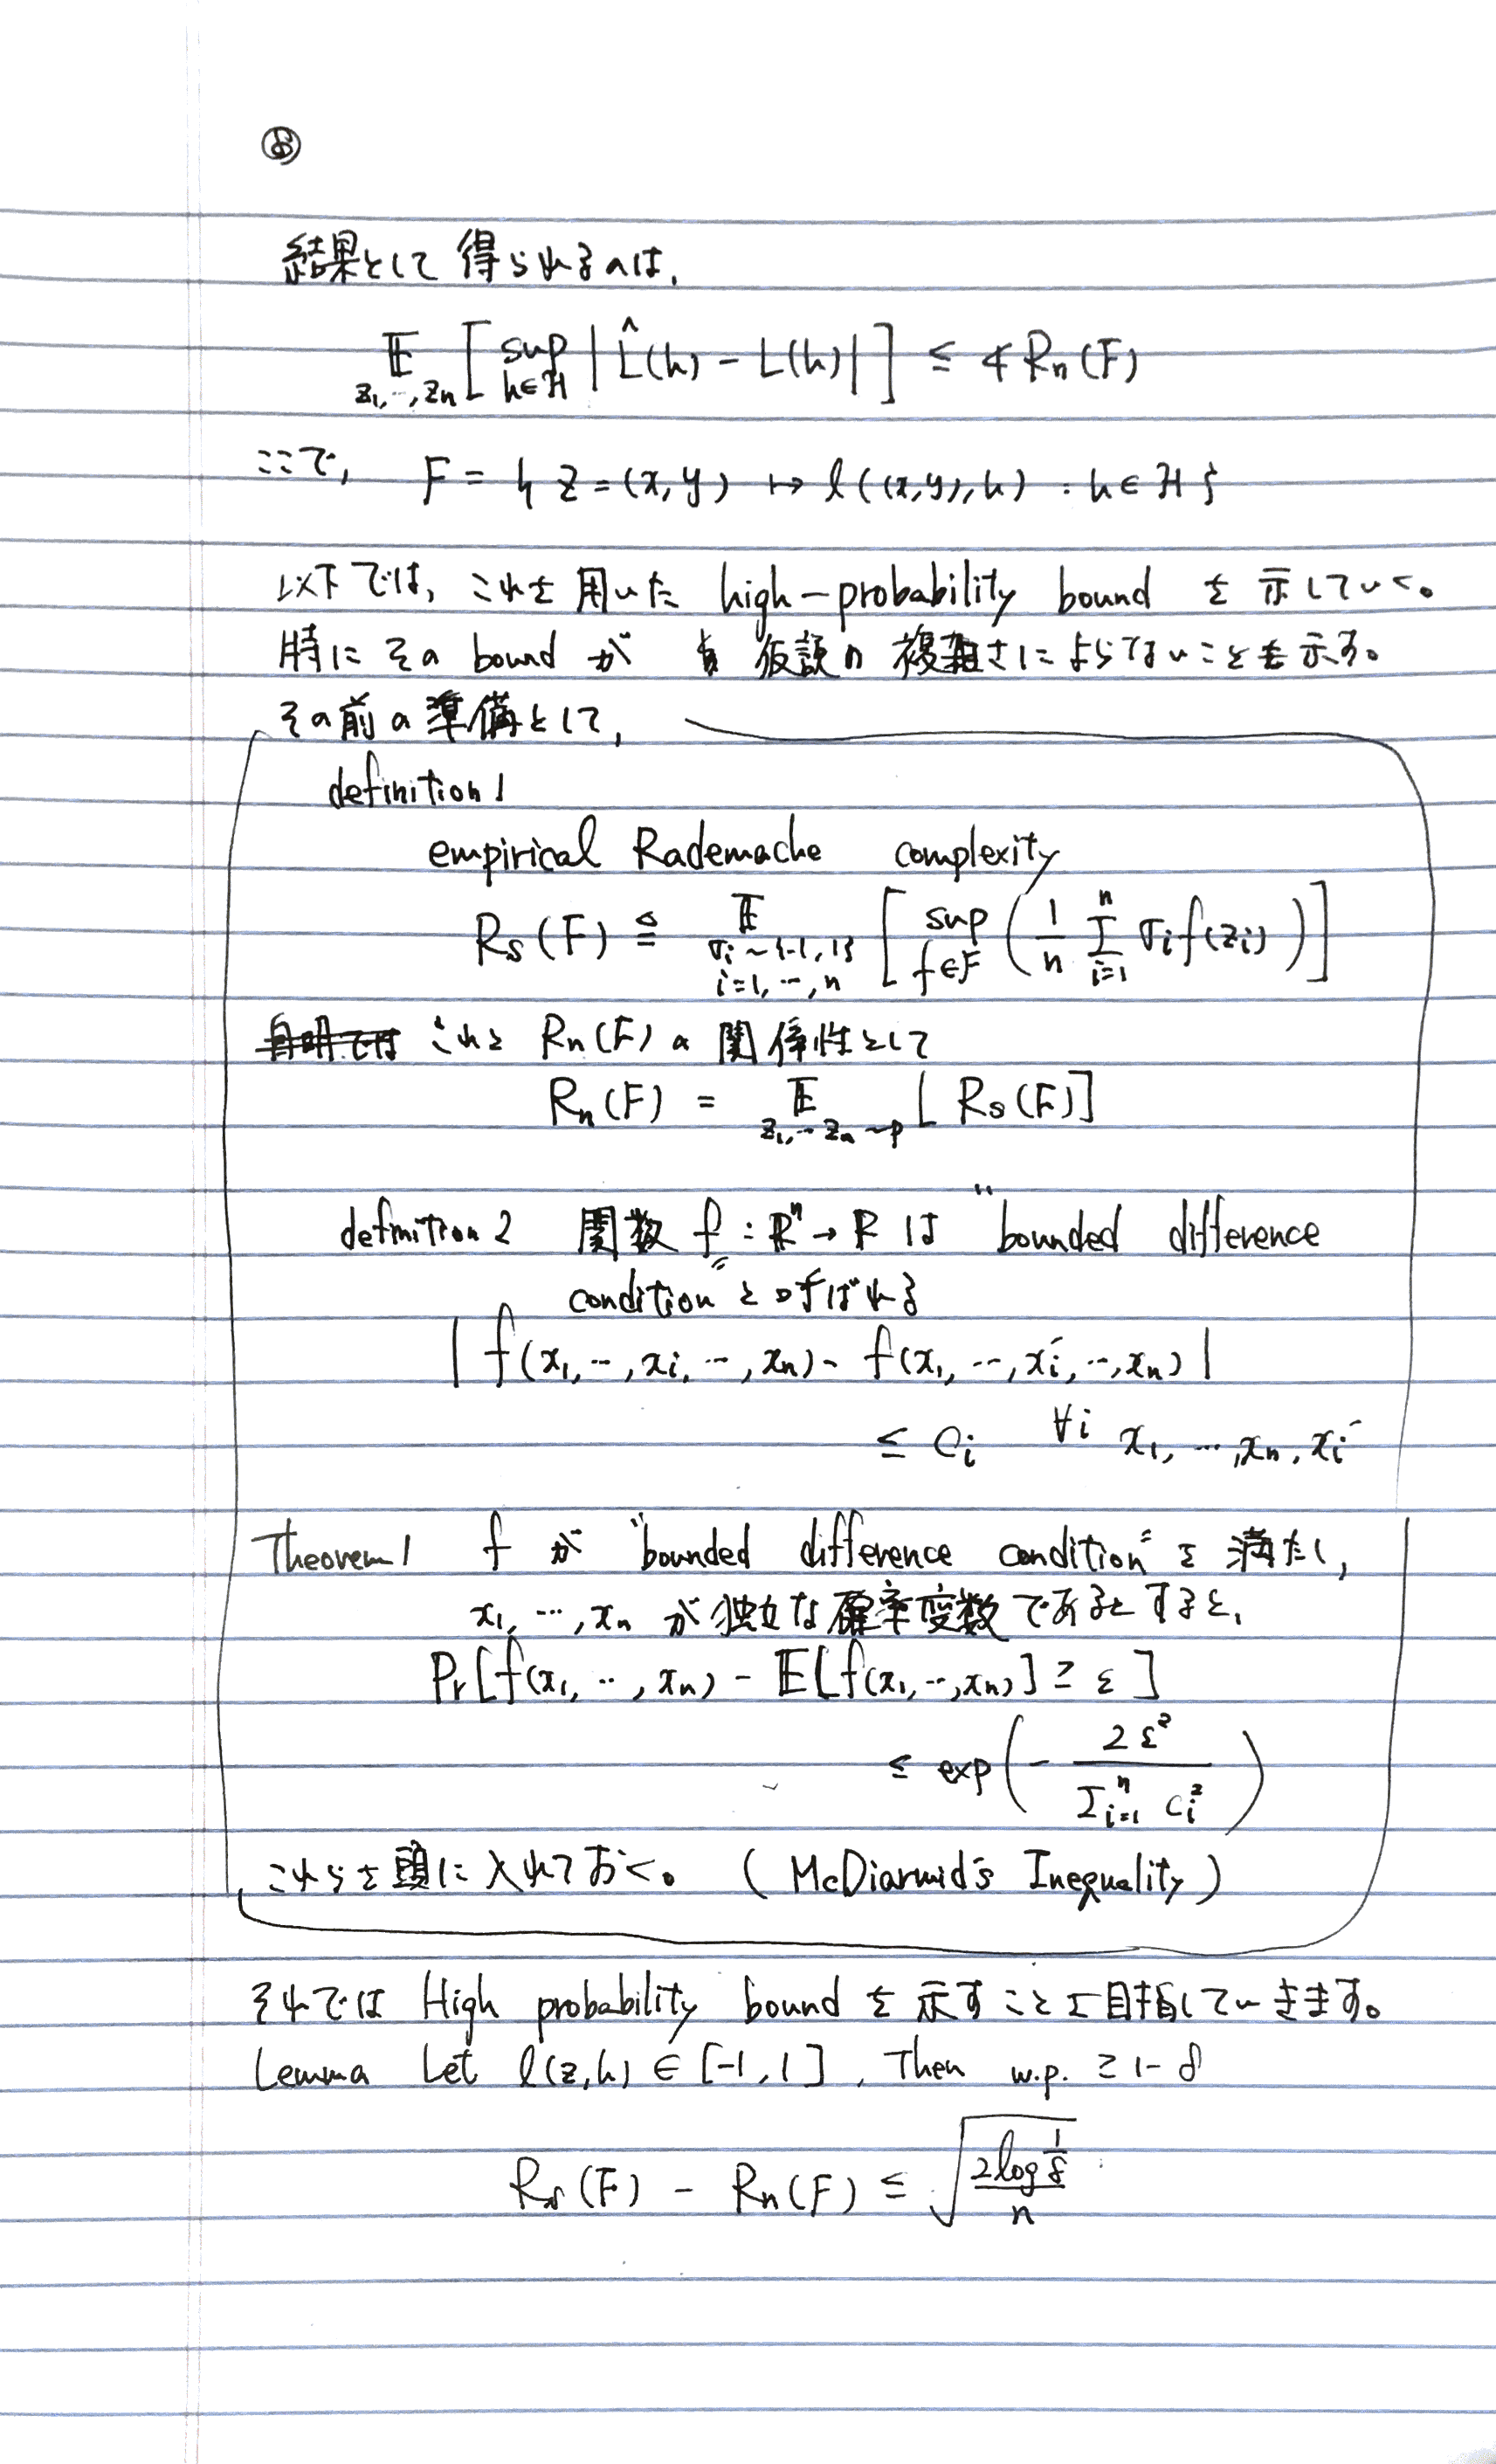 結果として得られるのは,
𝔼_{z₁,…,zₙ} [ sup_{h∈ℋ} | L̂(h) - L(h) | ] ≤ 4 Rₙ(F)
ここで, F = { z = (x, y) ↦ ℓ((x,y),h) : h ∈ ℋ }
以下では, これを用いた high-probability bound を示していく。
特にその bound が 仮説の複雑さによらないことも示す。
その前の準備として,
definition 1
empirical Rademache complexity
R_S(F) ≜ 𝔼_{σᵢ~{-1,1} i=1,…,n} [ sup_{f∈F} ( 1/n Σ_{i=1}^{n} σᵢ f(zᵢ) ) ]
これと Rₙ(F) の関係性として
Rₙ(F) = 𝔼_{z₁,…zₙ~p} [ R_S(F) ]
definition 2 関数 f : ℝⁿ → ℝ は "bounded difference
condition" と呼ばれる
| f(x₁, …, xᵢ, …, xₙ) - f(x₁, …, xᵢ′, …, xₙ) |
≤ Cᵢ ∀i x₁, …, xₙ, xᵢ′
Theorem 1 f が "bounded difference condition" を満たし,
x₁, …, xₙ が独立な確率変数であるとすると,
Pr[f(x₁, …, xₙ) - 𝔼[f(x₁, …, xₙ)] ≥ ε ]
≤ exp( - 2ε² / Σ_{i=1}^{n} cᵢ² )
これらを頭に入れておく。 (McDiarmid's Inequality)
それでは High probability bound を示すことを目指していきます。
Lemma Let ℓ(z,h) ∈ [-1, 1], Then w.p. ≥ 1-δ
R_S(F) - Rₙ(F) ≤ √(2log(1/δ) / n)